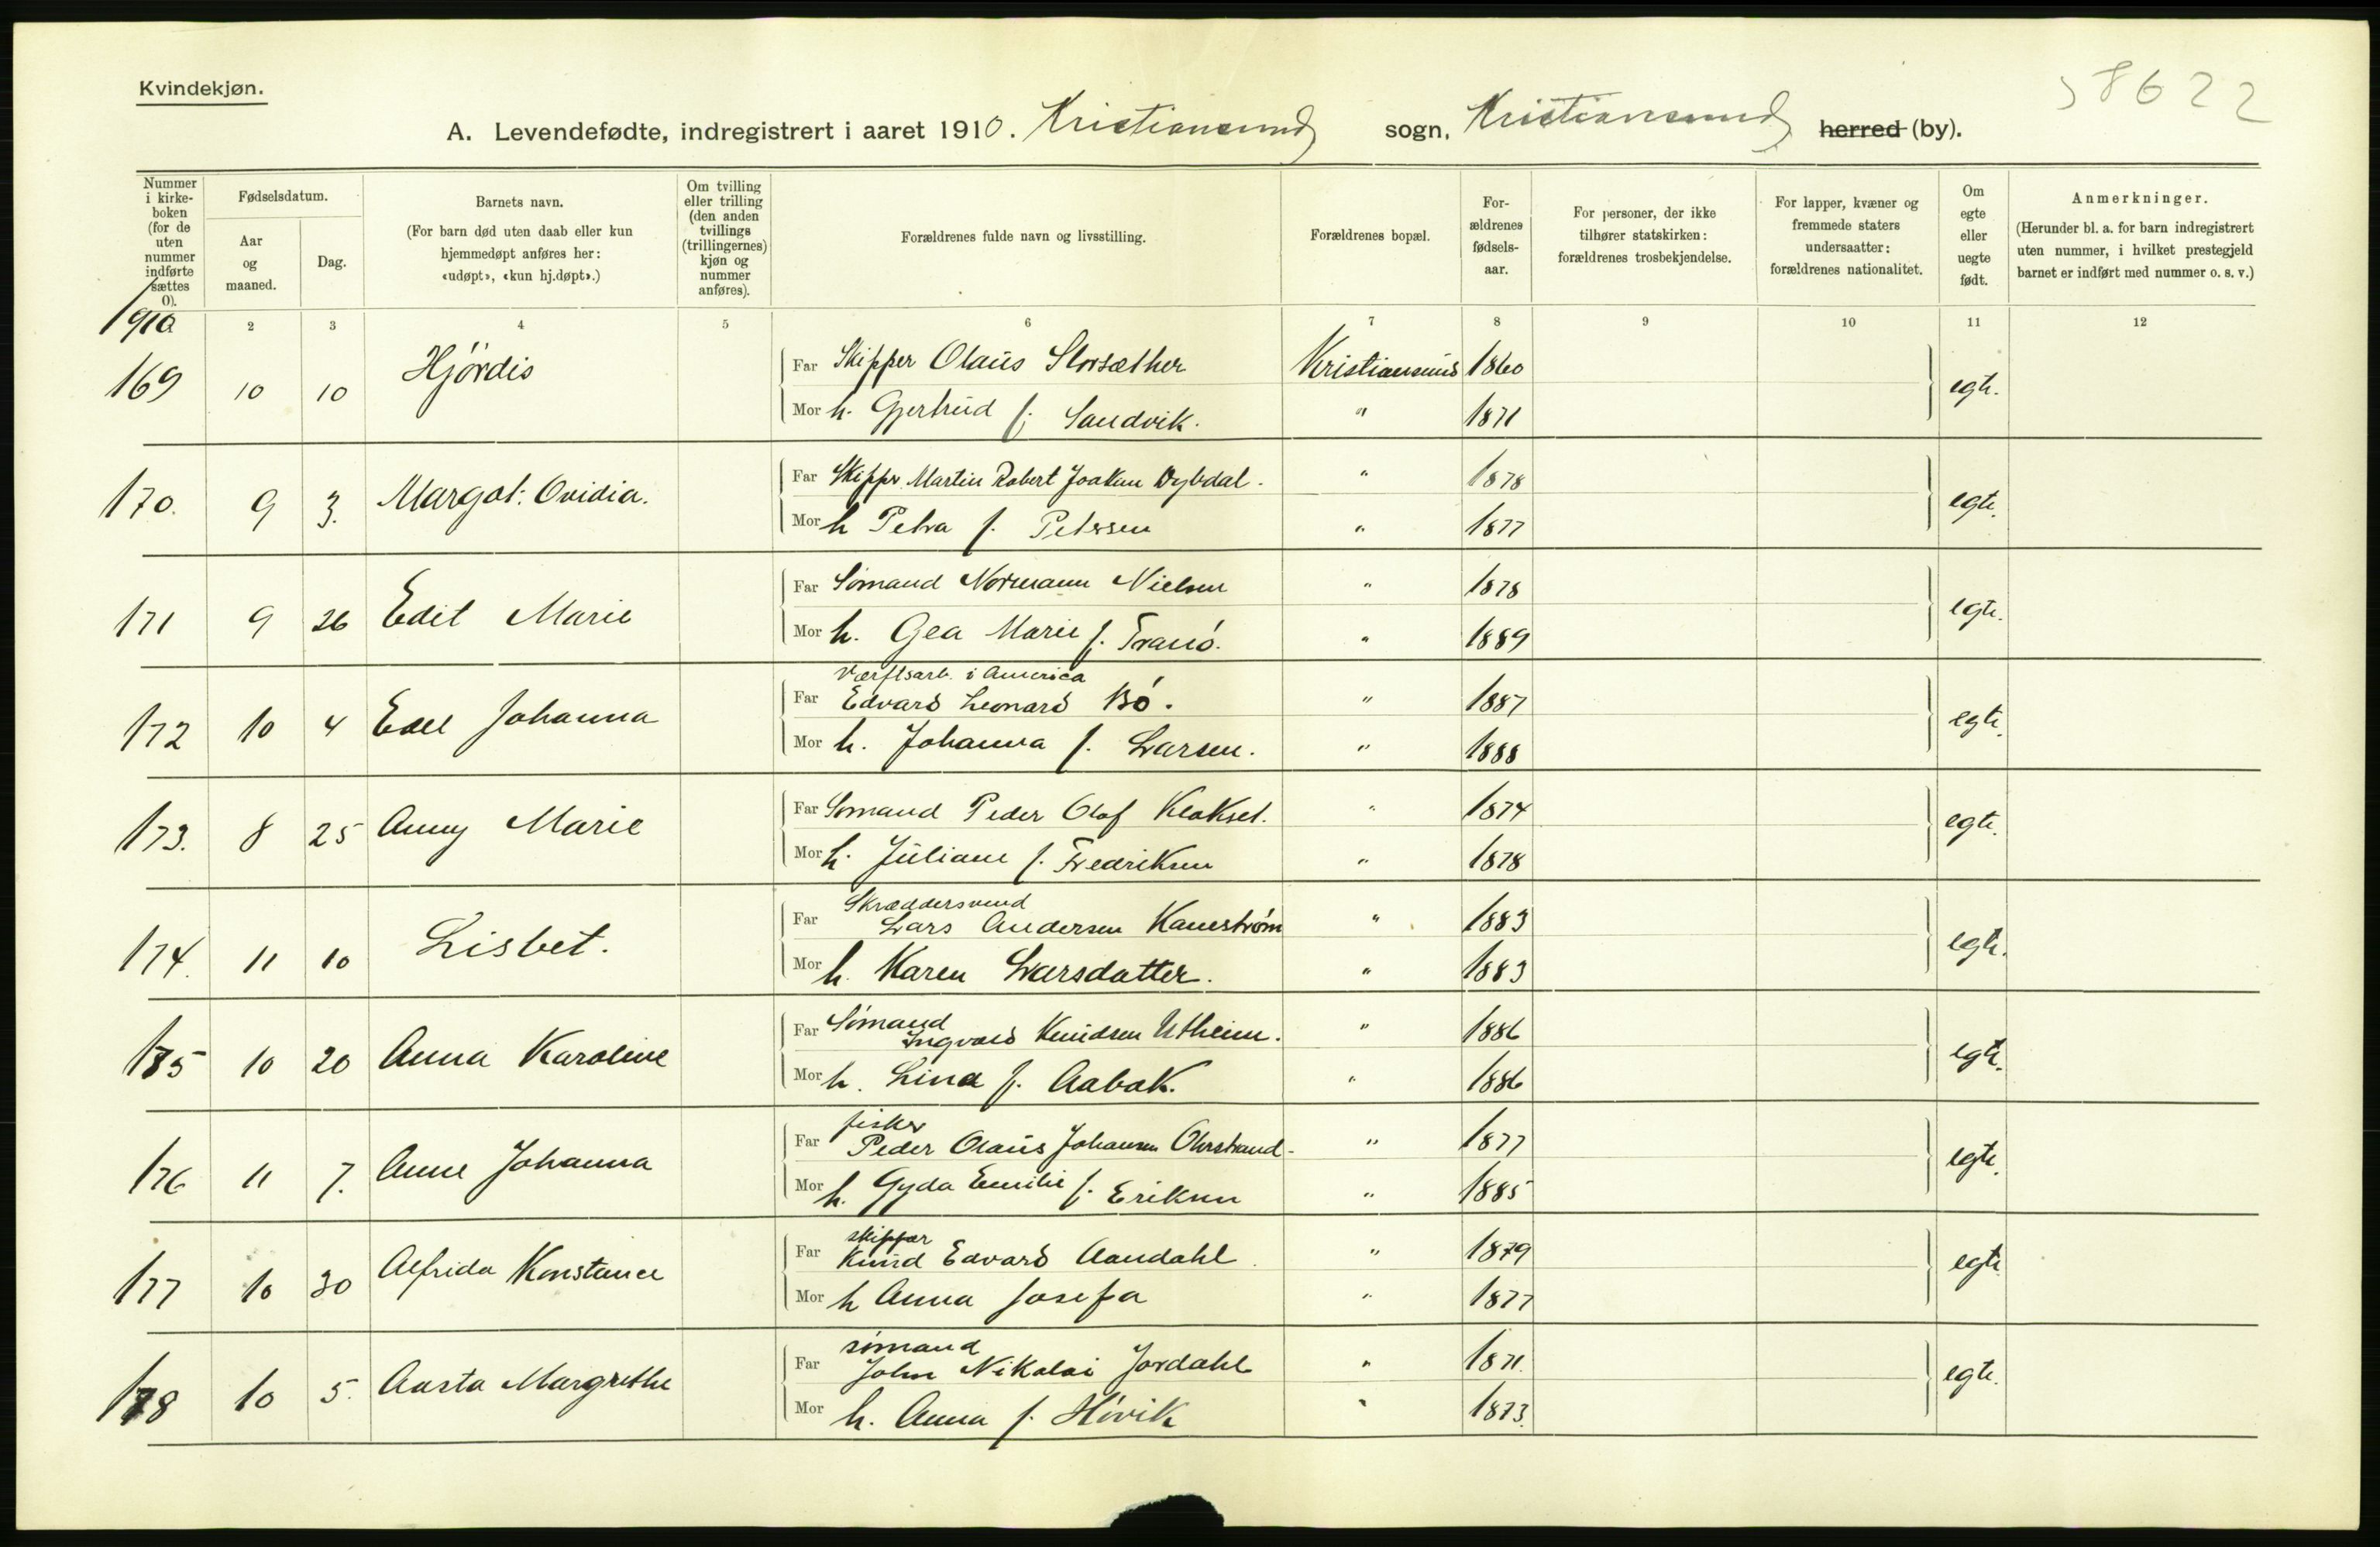 Kvindekjøn.
58622
A. Levendefødte, indregistrert i aaret 1910. Kristiansund sogn, Kristiansund herred (by).
Nummer i kirke-boken (for de uten nummer indførte sættes 0).
Fødselsdatum.
Aar og maaned.
Dag.
Barnets navn.
(For barn død uten daab eller kun hjemmedøpt anføres her: «udøpt», «kun hj.døpt».)
Om tvilling eller trilling (den anden tvillings (trillingernes) kjøn og nummer anføres).
Forældrenes fulde navn og livsstilling.
Forældrenes bopæl.
For-ældrenes fødsels-aar.
For personer, der ikke tilhører statskirken: forældrenes trosbekjendelse.
For lapper, kvæner og fremmede staters undersaatter: forældrenes nationalitet.
Om egte eller uegte født.
Anmerkninger.
(Herunder bl. a. for barn indregistrert uten nummer, i hvilket prestegjeld barnet er indført med nummer o. s. v.)
1910 2 3 4 5 6 7 8 9 10 11 12
169 10 10 Hjördis Far Skipper Olaus Storsæther Kristiansund 1860 egte.
Mor h. Gjertrud f. Sandvik. " 1871
170. 9 3. Margot Ovidia. Far Skipper Martin Robert Joakim Dybdal. " 1878 egte.
Mor h Petra f. Petersen " 1877
171 9 26 Edit Marie Far Sømand Normann Nielsen " 1878 egte.
Mor h. Gea Marie f. Tranø. " 1889
Værftsarb. i America
172 10 4 Edel Johanna Far Edvard Leonard Bø. " 1887 egte.
Mor h. Johanna f. Larsen. " 1888
173. 8 25 Anny Marie Far Sømand Peder Olaf Klakset. " 1874 egte.
Mor h. Juliane f. Fredriksen " 1878
Skræddersvend
174. 11 10 Lisbet. Far Lars Andersen Kanestrøm " 1883 egte.
Mor h. Karen Larsdatter. " 1883
Sømand
175 10 20 Anna Karoline Far Ingvald Knudsen Utheim. " 1886 egte.
Mor h. Lina f. Aabak. " 1886
fisker
176 11 7. Anne Johanna Far Peder Olaus Johansen Ohrstrand " 1877 egte.
Mor h. Gyda Emilie f. Eriksen " 1885
skipper
177 10 30 Alfrida Konstance Far Knud Edvard Aandahl " 1879 egte
Mor h Anna Josefa " 1877
sømand
178 10 5. Aasta Margrethe Far John Nikolai Jordahl " 1871. egte.
Mor h. Anna f. Høvik " 1873.